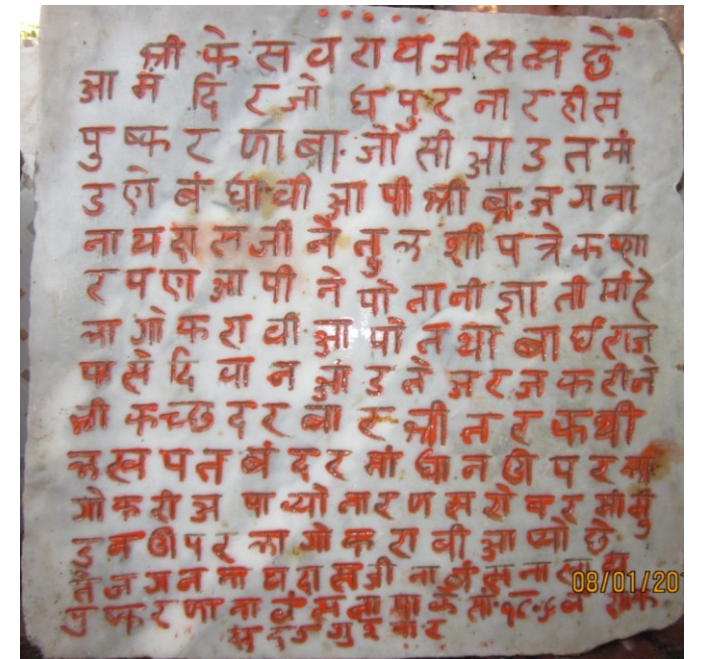 श्री केसवरायजी सत्य छे
आ मंदिर जोधपुरना रहीस
पुष्करणा ब्रा. जोसी आउतमां
उणे बंधावी आपी श्री ब्र. जगना
नाथदासजी ने तुलशी पत्रे कष्णा
रपण आपी ने पोतानी ज्ञाती मांहे
लागो करावी आपो तथा बाईराज
पासे दिवान आउते अरज करीने
श्री कच्छ दरबार श्री तरफथी
लखपत बंदरमां धान उपर ला
गो करी अपाव्यो नारणसरोवरमां
उपर लागो करावी आप्यो छे
जगननाथदासजी ना वंसना
पुष्करणा ना वंसना
गुरुवार
08/01/20